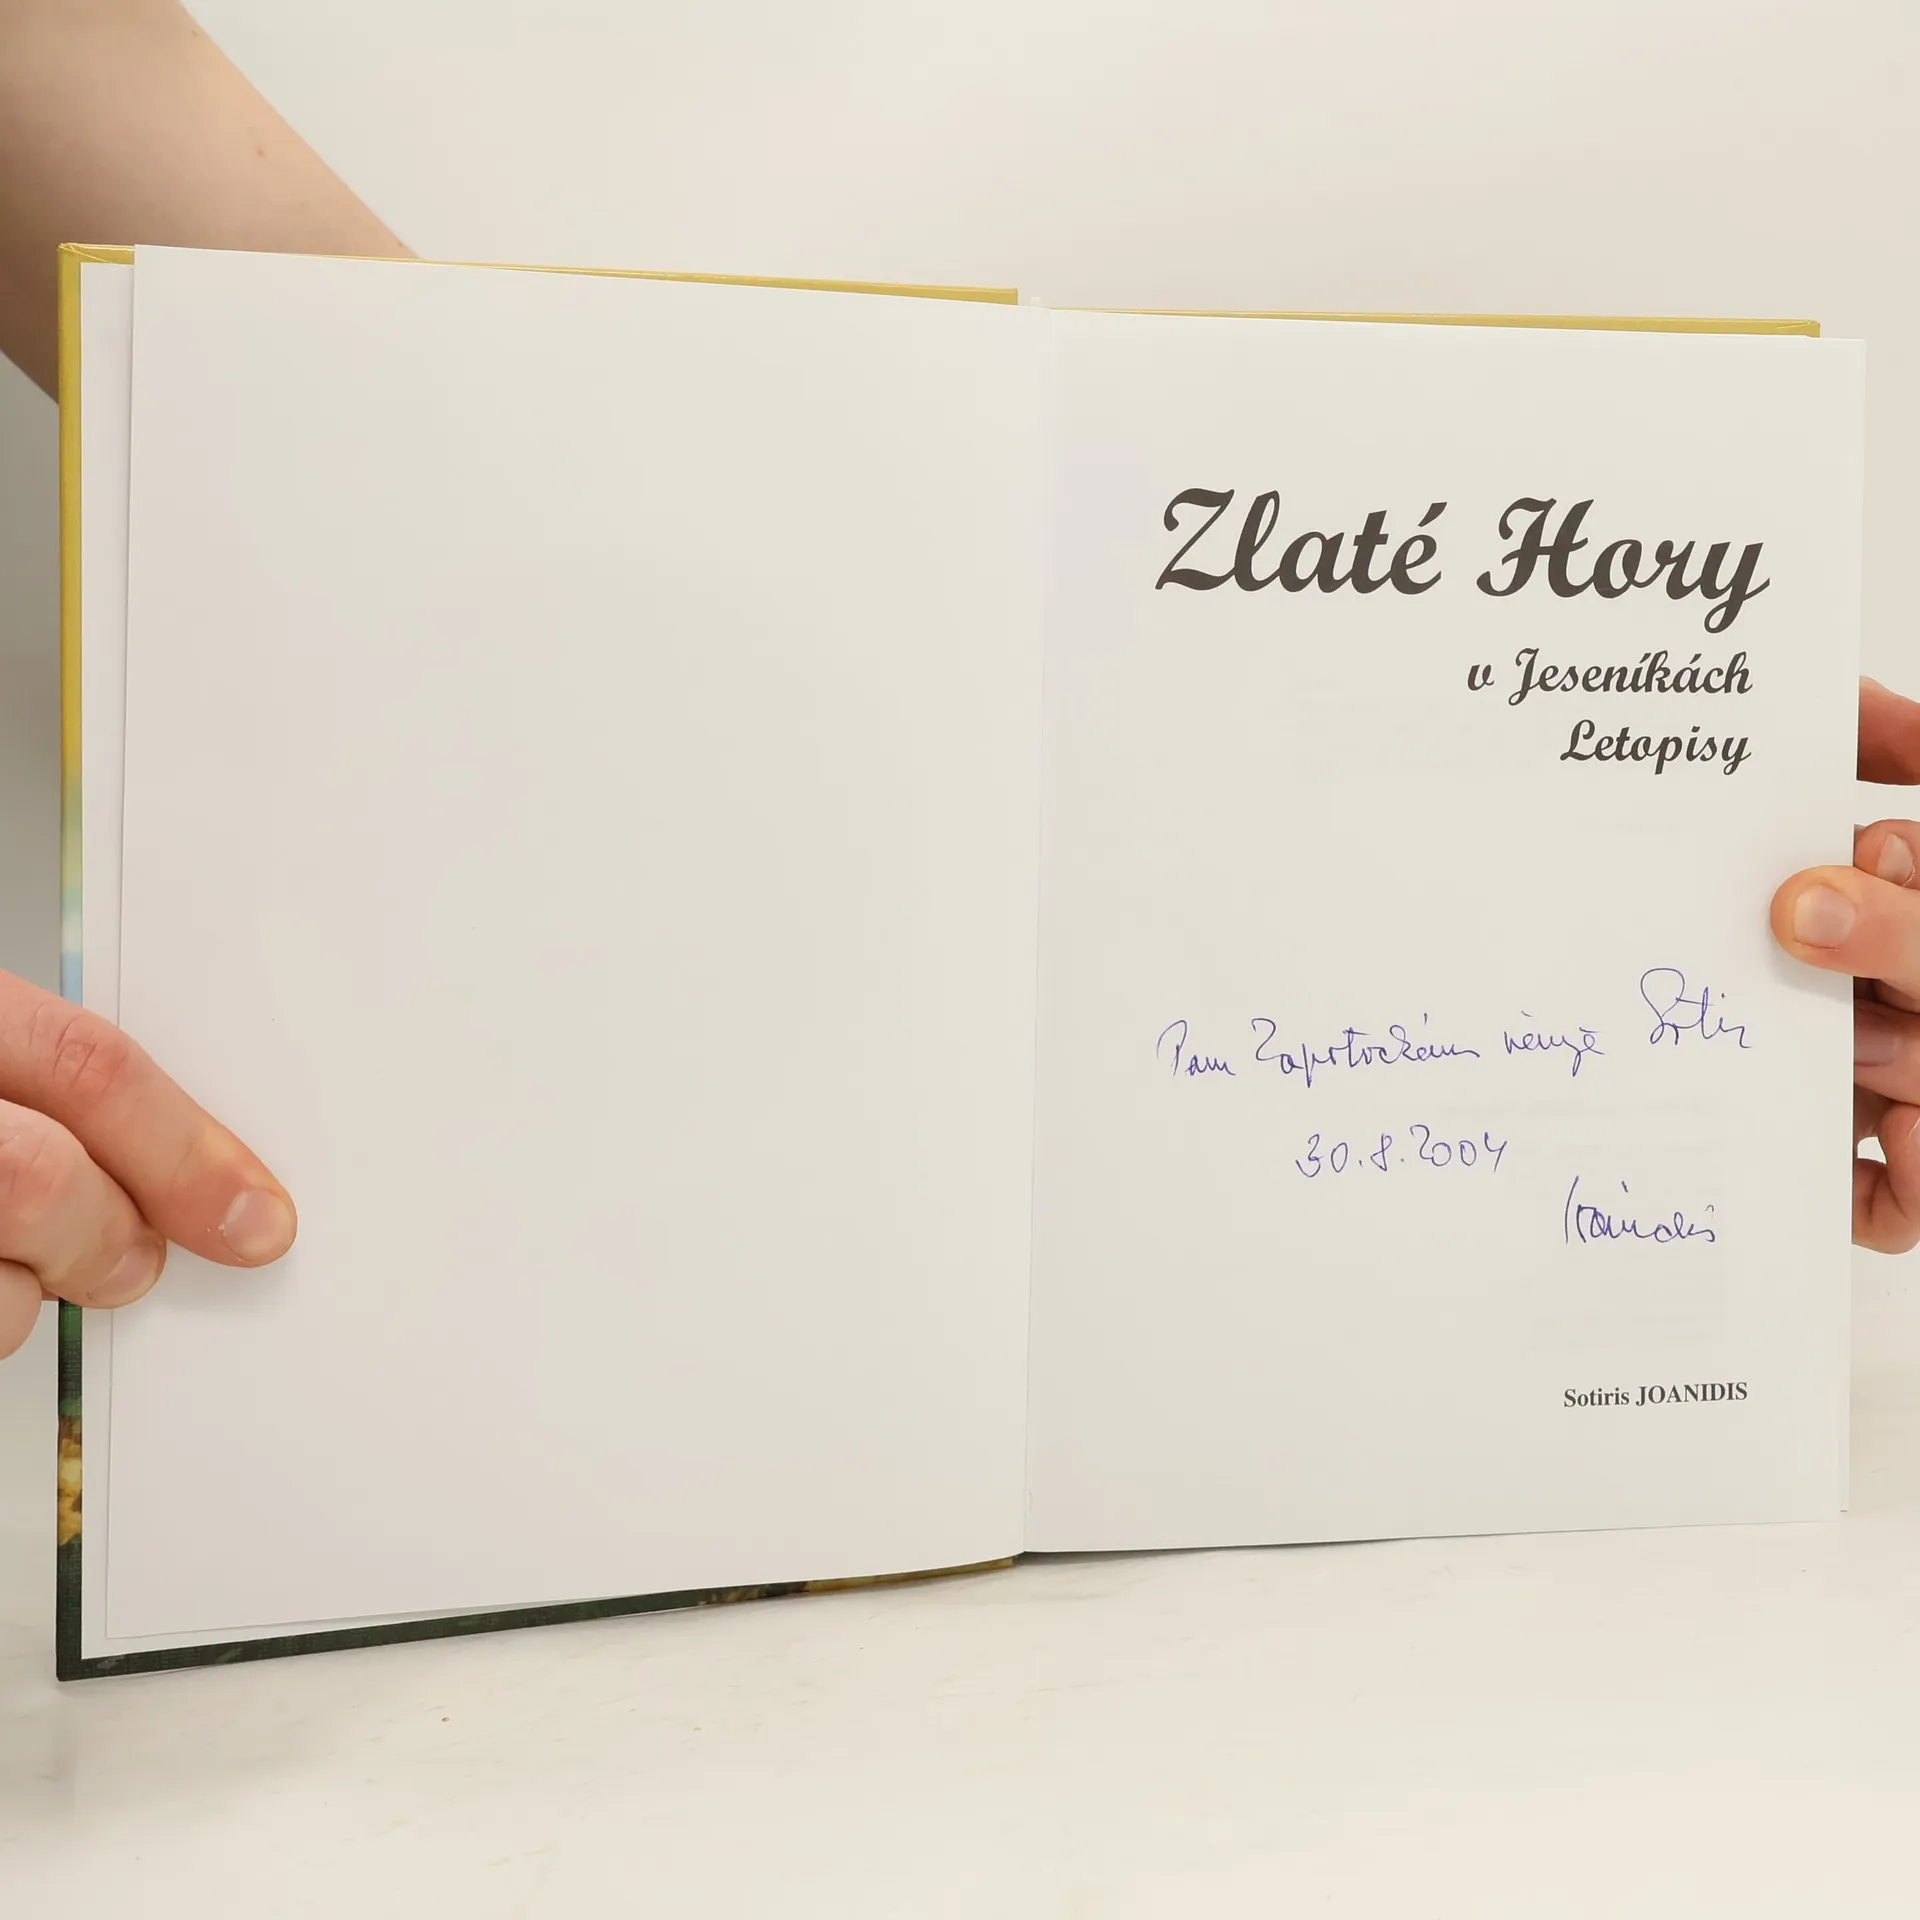 Zlaté Hory
v Jeseníkách
Letopisy
Panu Zápotockému věnuje
30.8.2004
Sotiris JOANIDIS